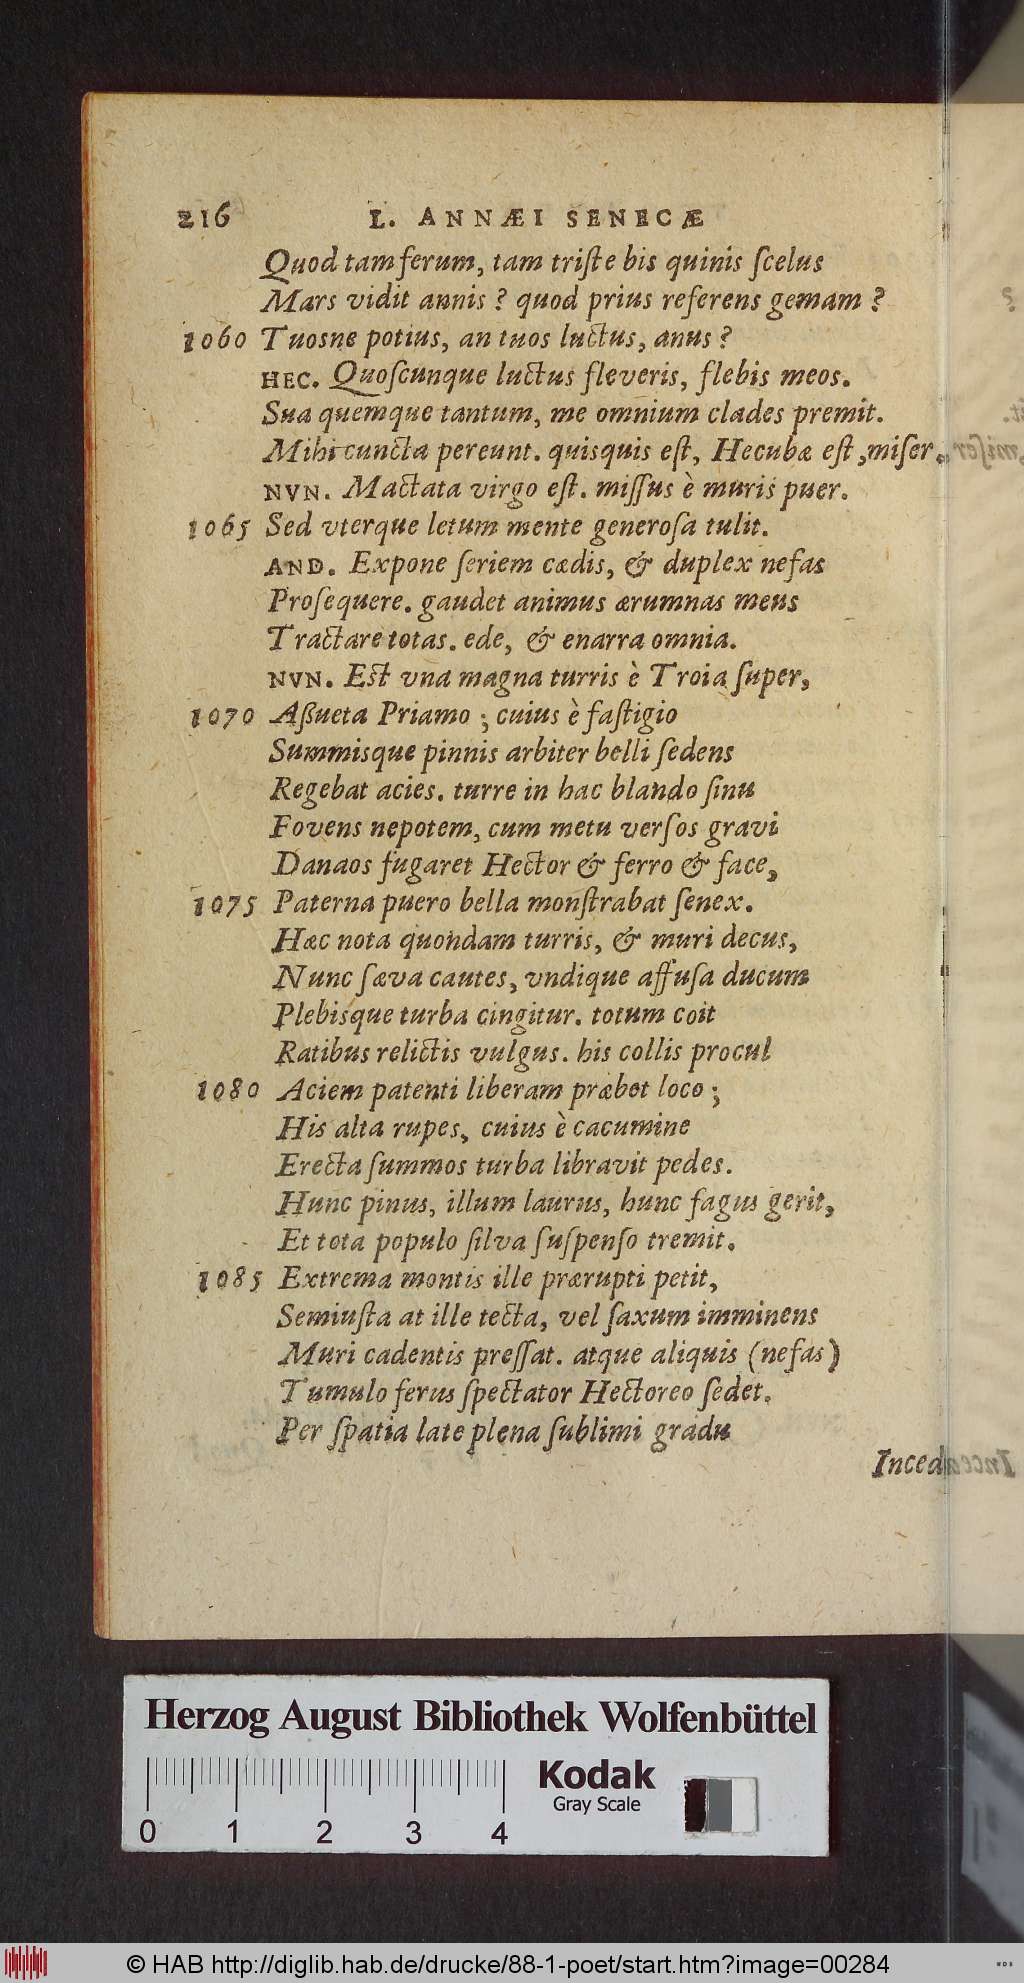 216 L. ANNÆI SENECÆ
Quod tam ferum, tam triſte bis quinis ſcelus
Mars vidit annis? quod prius referens gemam?
1060 Tuosne potius, an tuos luctus, anus?
HEC. Quoſcunque luctus fleveris, flebis meos.
Sua quemque tantum, me omnium clades premit.
Mihi cuncta pereunt. quisquis eſt, Hecubæ eſt, miſer.
NVN. Mactata virgo eſt. miſſus è muris puer.
1065 Sed vterque letum mente generoſa tulit.
AND. Expone ſeriem cædis, & duplex nefas
Proſequere. gaudet animus ærumnas meus
Tractare totas. ede, & enarra omnia.
NVN. Eſt vna magna turris è Troia ſuper,
1070 Aßueta Priamo; cuius è faſtigio
Summisque pinnis arbiter belli ſedens
Regebat acies. turre in hac blando ſinu
Fovens nepotem, cum metu verſos gravi
Danaos fugaret Hector & ferro & face,
1075 Paterna puero bella monſtrabat ſenex.
Hæc nota quondam turris, & muri decus,
Nunc ſæva cautes, vndique affuſa ducum
Plebisque turba cingitur. totum coit
Ratibus relictis vulgus. his collis procul
1080 Aciem patenti liberam præbet loco;
His alta rupes, cuius è cacumine
Erecta ſummos turba libravit pedes.
Hunc pinus, illum laurus, hunc fagus gerit,
Et tota populo ſilva ſuſpenſo tremit.
1085 Extrema montis ille prærupti petit,
Semiuſta at ille tecta, vel ſaxum imminens
Muri cadentis preſſat. atque aliquis (nefas)
Tumulo ferus ſpectator Hectoreo ſedet.
Per ſpatia late plena ſublimi gradu
Inced
Herzog August Bibliothek Wolfenbüttel
Kodak
Gray Scale
0 1 2 3 4
© HAB http://diglib.hab.de/drucke/88-1-poet/start.htm?image=00284